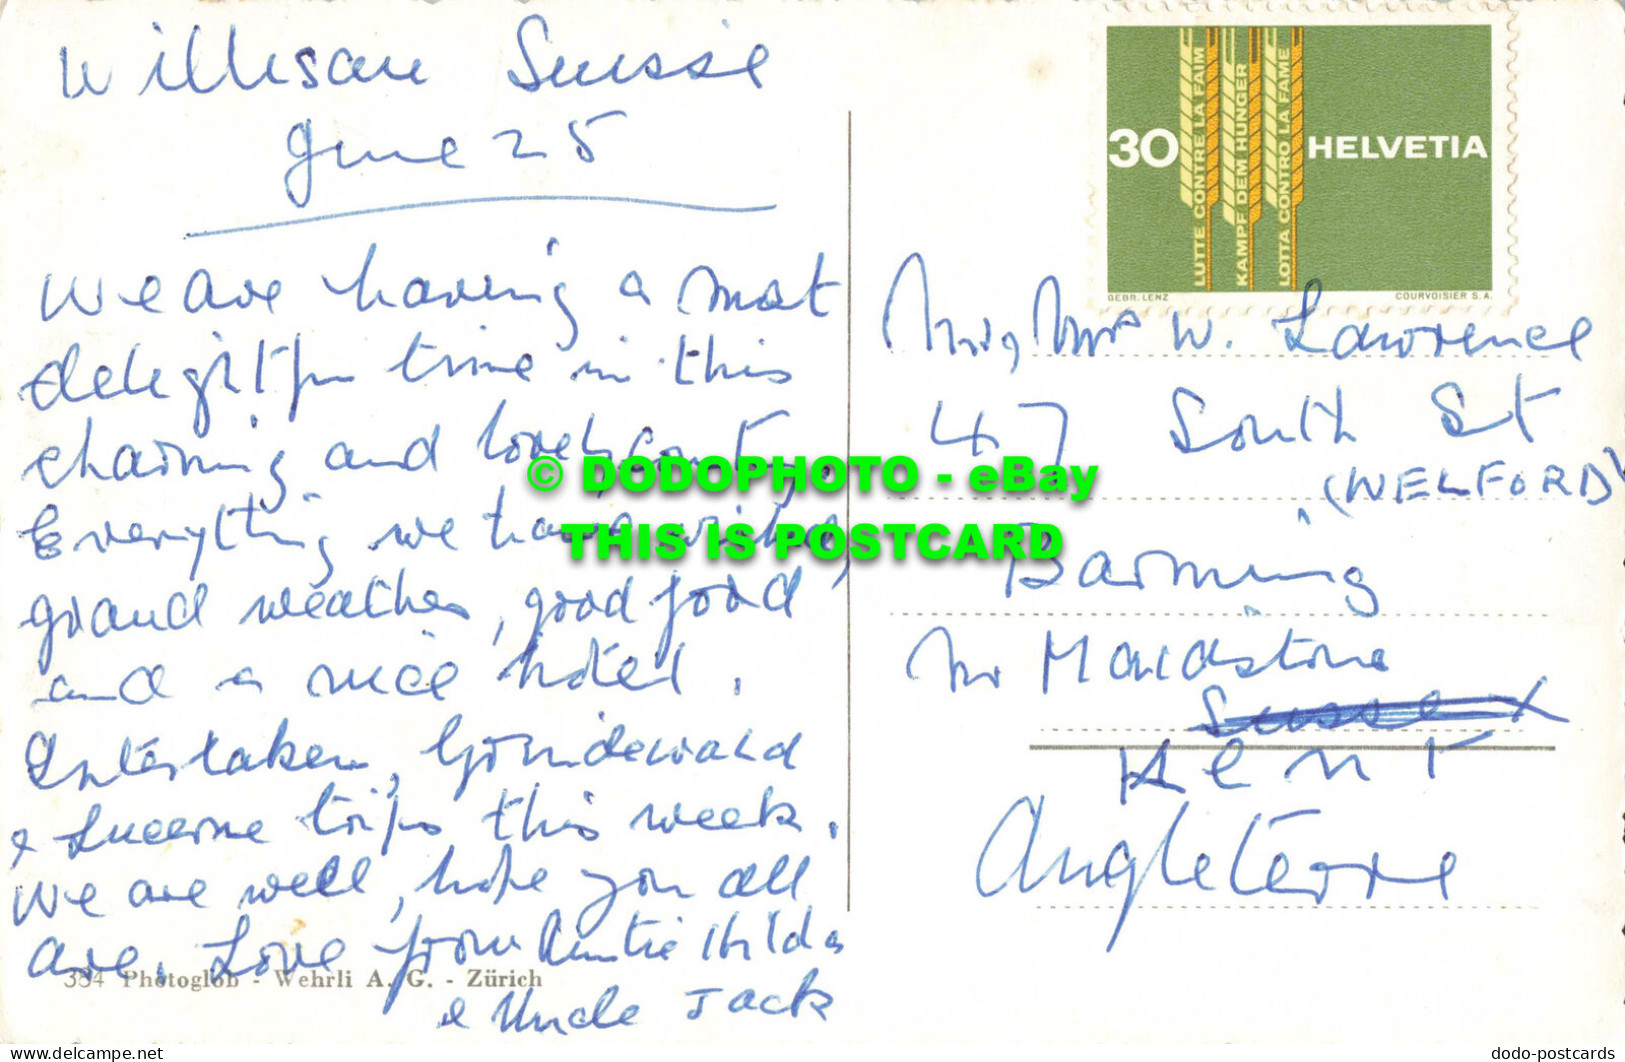 Willisau Suisse
June 25
We are having a most
delightful time in this
charming and lovely country.
Everything we have wished,
grand weather, good food
and a nice hotel.
Interlaken, Grindewald
& Lucerne trips this week.
We are well, hope you all
are. Love from Auntie Hilda
& Uncle Jack
384 Photoglob - Wehrli A. G. - Zürich
30
LUTTE CONTRE LA FAIM
KAMPF DEM HUNGER
LOTTA CONTRO LA FAME
HELVETIA
GEBR. LENZ
COURVOISIER S.A.
Mr, Mrs W. Lawrence
47 South St
(WELFORD)
Barming
Nr Maidstone
Suisse
Kent
Angleterre
© DODOPHOTO - eBay
THIS IS POSTCARD
www.delcampe.net
dodo-postcards